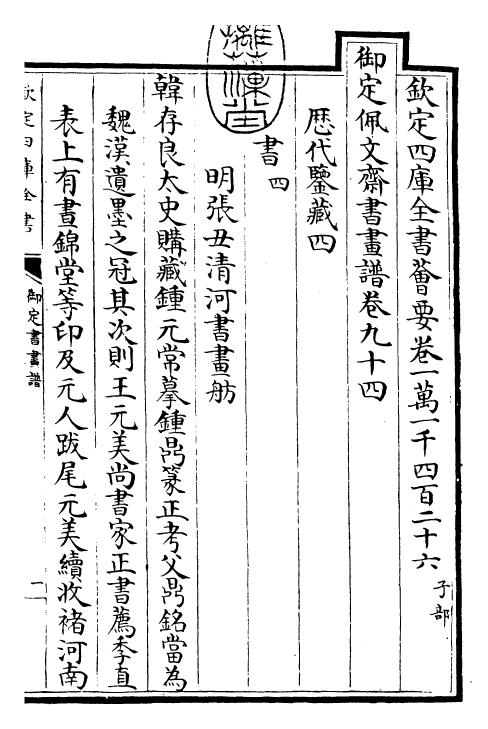 欽定四庫全書薈要卷一萬一千四百二十六
子部
御定佩文齋書畫譜卷九十四
歴代鑒藏四
書四
明張丑清河書畫舫
韓存良太史購藏鍾元常摹鍾鼎篆正考父鼎銘當為
魏漢遺墨之冠其次則王元美尚書家正書薦季直
表上有晝錦堂等印及元人跋尾元美續收禇河南
欽定四庫全書
御定書畫譜